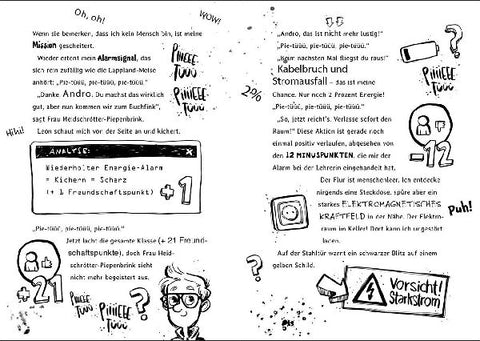 Oh, oh!
WOW!
Wenn sie bemerken, dass ich kein Mensch bin, ist meine
Mission gescheitert.
Wieder ertönt mein Alarmsignal, das
sich rein zufällig wie die Lappland-Meise
anhört: „Pie-tüüü, pie-tüüü, pie-tüüü.“
PiiiEEE-
Tüüü
„Danke Andro. Du machst das wirklich
gut, aber nun kommen wir zum Buchfink“,
sagt Frau Heidschrötter-Piepenbrink.
PiiiEEE-
Tüüü
Hihi!
Leon schaut mich von der Seite an und kichert.
ANALYSE: X
Wiederholter Energie-Alarm
= Kichern = Scherz
(+ 1 Freundschaftspunkt)
+1
„Pie-tüüü, pie-tüüü, pie-tüüü.“
Jetzt lacht die gesamte Klasse (+ 21 Freund-
schaftspunkte), doch Frau Heid-
schrötter-Piepenbrink sieht
nicht mehr begeistert aus.
+21
PiiiEEE-
Tüüü
PiiiiEEE-
Tüüü
?
„Andro, das ist nicht mehr lustig!“
„Pie-tüüü, pie-tüüü, pie-tüüü.“
„Kein nächstes Mal fliegst du raus!“
Kabelbruch und
Stromausfall – das ist meine
Chance. Nur noch 2 Prozent Energie!
2%
?
PiiiiEEE-
Tüüü
„Pie-tüüü, pie-tüüü, pie-tüüü.“
„So, jetzt reicht’s. Verlasse sofort den
Raum!“ Diese Aktion ist gerade noch
einmal positiv verlaufen, abgesehen von
den 12 MINUSPUNKTEN, die mir der
Alarm bei der Lehrerin eingehandelt hat.
-12
Der Flur ist menschenleer. Ich entdecke
nirgends eine Steckdose, spüre aber ein
starkes ELEKTROMAGNETISCHES
KRAFTFELD in der Nähe. Der Elektro-
raum im Keller! Dort kann ich ungestört
laden.
Puh!
Auf der Stahltür warnt ein schwarzer Blitz auf einem
gelben Schild.
?
Vorsicht!
Starkstrom